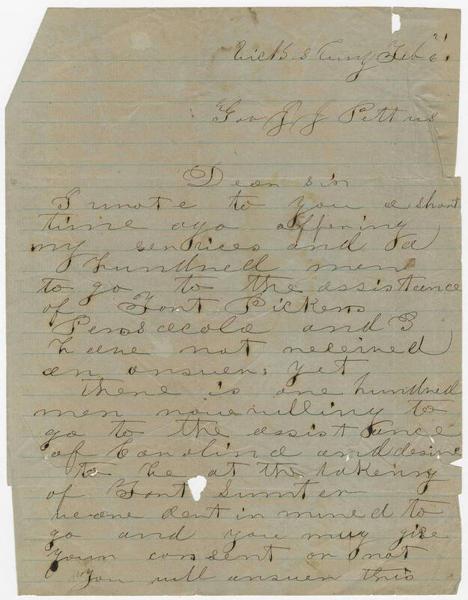 Vicksburg Feb 6"
Gov J J Pettus
Dear sir
I wrote to you a short
time ago offering
my services and a
hundred mens
to go to the assistance
of Fort Pickens
Pensacola and I
have not received
an answer yet
there is one hundred
men now willing to
go to the assistance
of Carolina and desire
to be at the takeing
of Fort Sumter
we are dent in mined to
go and you may give
your consent or not
You will answer this